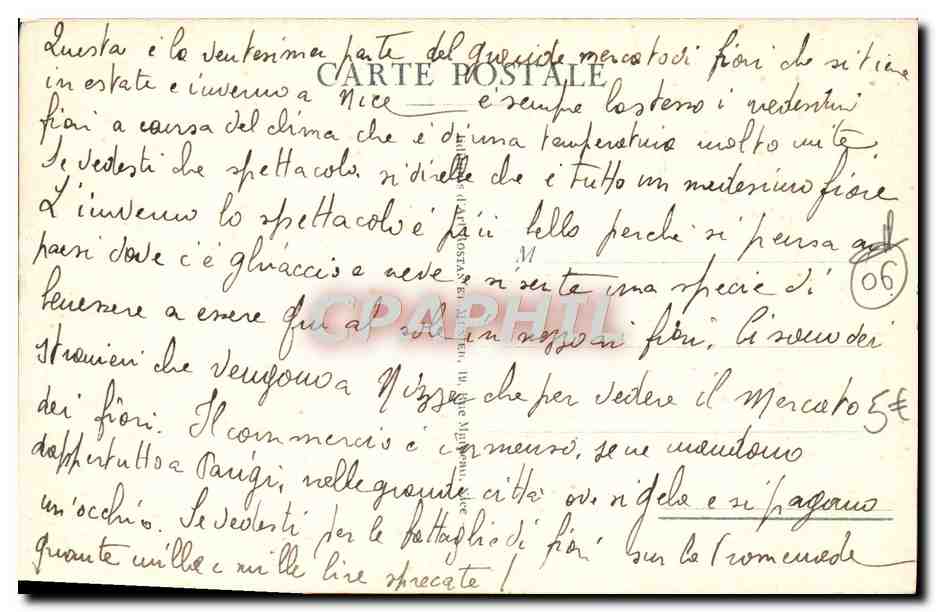 Questa è la ventesima parte del grande mercato di fiori che si tiene
CARTE POSTALE
in estate e inverno a Nice — è sempre lo stesso i medesimi
fiori a causa del clima che è di una temperatura molto mite.
Se vedesti che spettacolo si direbbe che è tutto un medesimo fiore
L'inverno lo spettacolo è più bello perchè si pensa
M
paesi dove c'è ghiaccio e neve e si sente una specie di
06
benessere a essere qui al sole in mezzo ai fiori. Ci sono dei
CPAPHIL
stranieri che vengono a Nizza che per vedere il Mercato
5€
dei fiori. Il commercio è immenso, se ne mandano
dappertutto a Parigi, nelle grandi città ove si gela e si pagano
un'occhio. Se vedesti per le battaglie di fiori sur la Promenade
quante mille e mille lire sprecate!
d'Art ROSTAN ET MUNIER, Nice